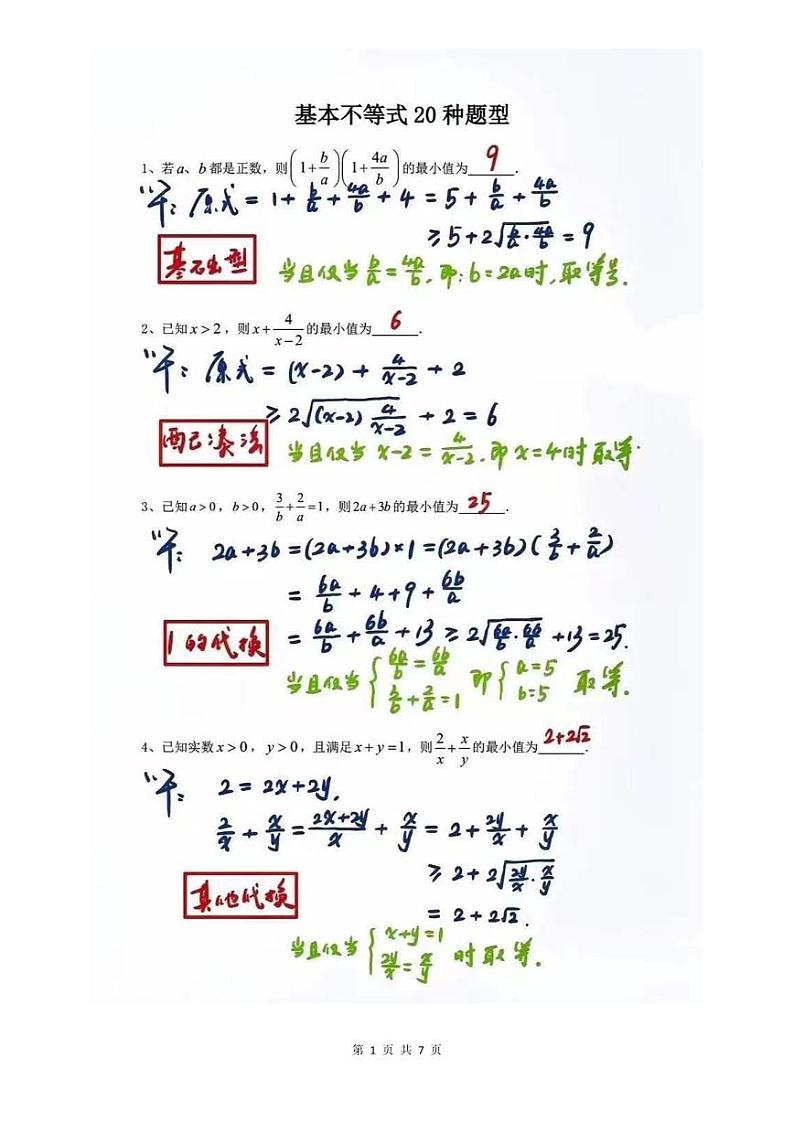 基本不等式 20 种题型
1、若 a、b 都是正数，则 (1+b/a)(1+4a/b) 的最小值为 9 .
解：原式 = 1 + b/a + 4a/b + 4 = 5 + b/a + 4a/b
≥ 5+2√(b/a · 4a/b) = 9
基石出型
当且仅当 b/a = 4a/b, 即：b=2a时, 取等号.
2、已知 x>2，则 x+4/(x−2) 的最小值为 6 .
解：原式 = (x−2) + 4/(x−2) + 2
≥ 2√((x−2) 4/(x−2)) + 2 = 6
配凑法
当且仅当 x−2 = 4/(x−2), 即 x=4时 取等.
3、已知 a>0，b>0，3/b+2/a=1，则 2a+3b 的最小值为 25 .
解：2a+3b = (2a+3b)×1 = (2a+3b)(3/b + 2/a)
= 6a/b + 4 + 9 + 6b/a
= 6a/b + 6b/a + 13 ≥ 2√(6a/b · 6b/a) + 13 = 25.
1的代换
当且仅当 { 6a/b = 6b/a 3/b + 2/a = 1 即 { a=5 b=5 取等.
4、已知实数 x>0，y>0，且满足 x+y=1，则 2/x+x/y 的最小值为 2+2√2 .
解：2 = 2x+2y.
2/x + x/y = (2x+2y)/x + x/y = 2 + 2y/x + x/y
≥ 2 + 2√(2y/x · x/y)
= 2 + 2√2 .
其他代换
当且仅当 { x+y=1 2y/x = x/y 时 取等.
第 1 页 共 7 页